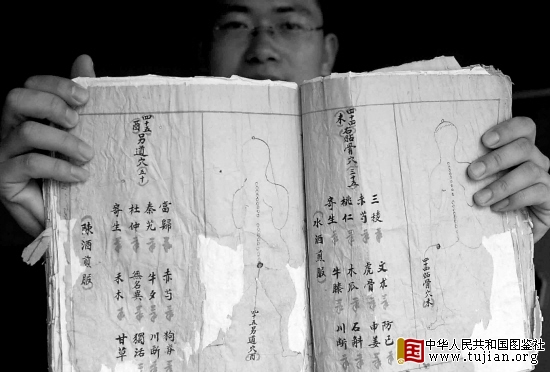 四十四右胎骨穴(三十五)
(未)
三棱 文术 防己
赤芍 虎骨 申姜
桃仁 木瓜 石斛
寄生 牛膝 川断
(水酒煎服)
四十五另道穴(五十)
(酉)
當歸 赤芍 狗脊
秦艽 牛夕 川断
杜仲 無名異 獨活
寄生 禾木 甘草
(陳酒煎服)
四五另道穴(酉)
中华人民共和国图鉴社
www.tujian.org